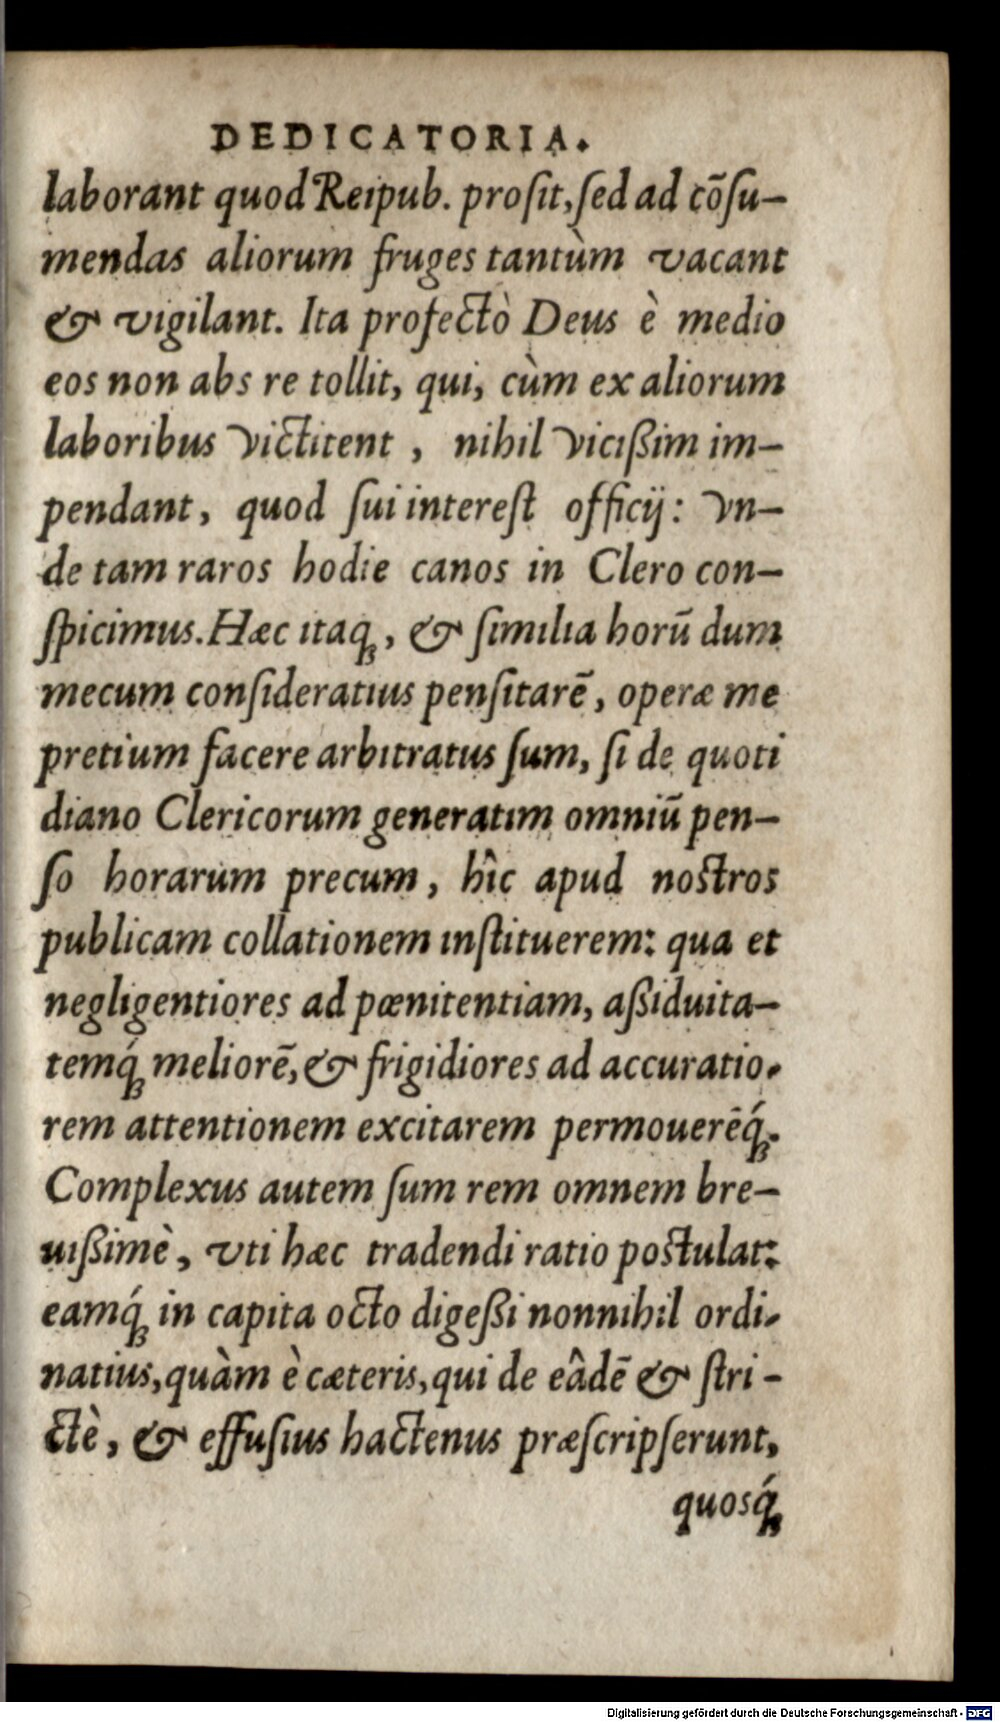 DEDICATORIA.
laborant quod Reipub. prosit, sed ad cõsu-
mendas aliorum fruges tantùm vacant
& vigilant. Ita profectò Deus è medio
eos non abs re tollit, qui, cùm ex aliorum
laboribus victitent, nihil viciſsim im-
pendant, quod ſui intereſt officij: vn-
de tam raros hodie canos in Clero con-
ſpicimus. Hæc itaq;, & ſimilia horũ dum
mecum conſideratius penſitarẽ, operæ me
pretium facere arbitratus ſum, ſi de quoti
diano Clericorum generatim omniũ pen-
ſo horarum precum, hîc apud noſtros
publicam collationem inſtituerem: qua et
negligentiores ad pœnitentiam, aſsiduita-
temq́; meliorẽ, & frigidiores ad accuratio-
rem attentionem excitarem permouerẽq́;.
Complexus autem ſum rem omnem bre-
uiſsimè, vti hæc tradendi ratio poſtulat:
eamq́; in capita octo digeſsi nonnihil ordi-
natius, quàm è cæteris, qui de eâdẽ & ſtri-
ctè, & effuſius hactenus præſcripſerunt,
quosq́;
Digitalisierung gefördert durch die Deutsche Forschungsgemeinschaft - DFG